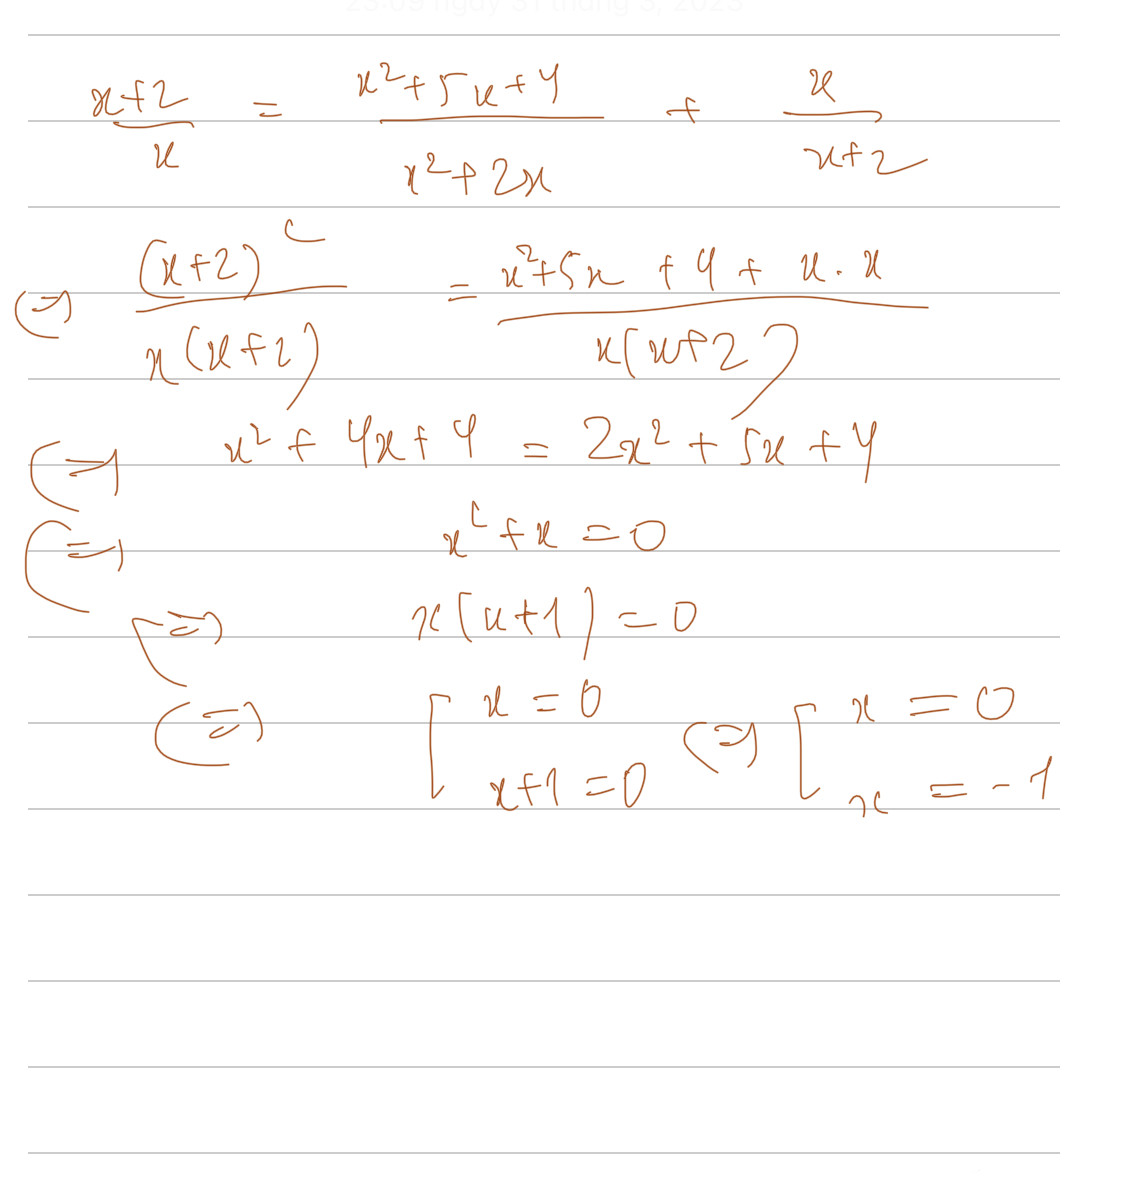 23:09 ngày 31 tháng 3, 2023
(x+2)/x = (x²+5x+4)/(x²+2x) + x/(x+2)
(=) (x+2)²/(x(x+2)) = (x²+5x+4+x.x)/(x(x+2))
(=) x²+4x+4 = 2x²+5x+4
(=) x²+x=0
(=) x(x+1)=0
(=) [x=0 x+1=0 (=) [x=0 x=-1